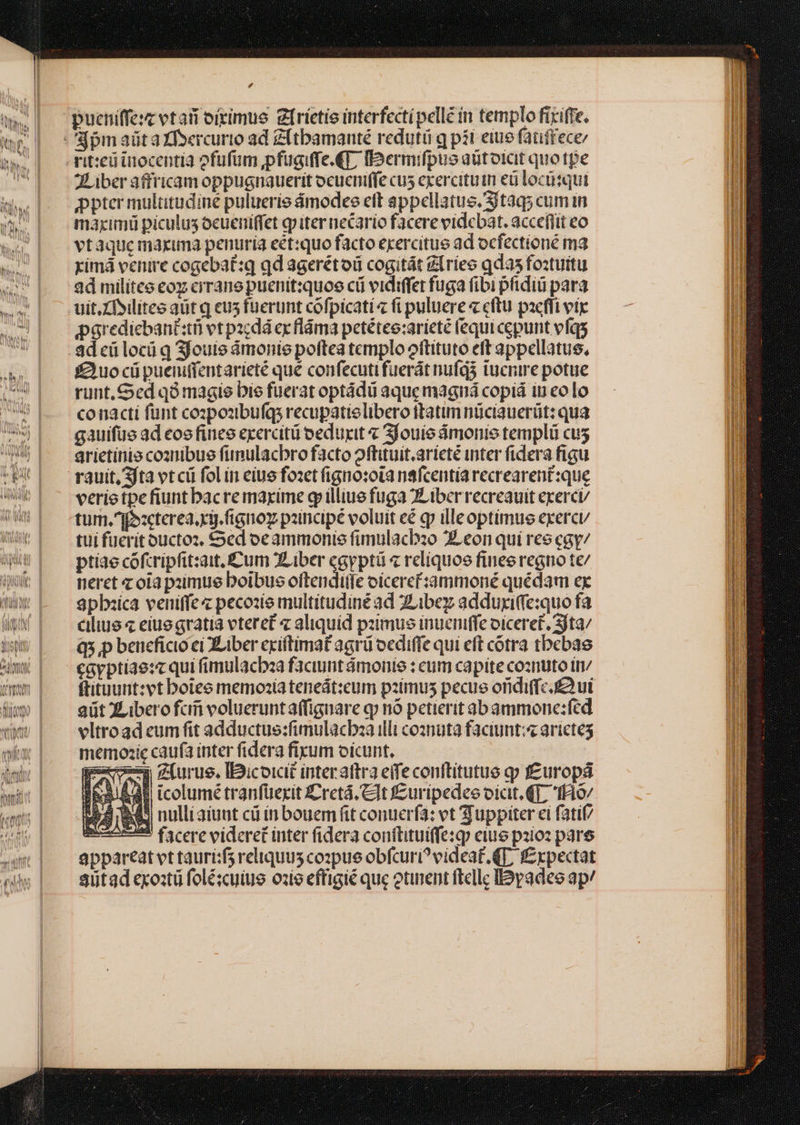 pueniſſe:⁊ vt añ diximus Arietis interfecti pellē in templo fixiſſe.
Ipm aūt a Mercurio ad Athamantē redutū q pr̄i eius ſatiſfece/
rit:eū īnocentia ↄfuſum ꝓfugiſſe.¶ Hermiſpus aūt dicit quo tp̄e
Liber affricam oppugnauerit deueniſſe cuꝫ exercitu in eū locū:qui
ꝓpter multitudinē pulueris āmodes eſt appellatus. Itaqꝫ cum in
maximū piculuꝫ deueniſſet qꝫ iter nec̄ario facere videbat. acceſſit eo
vt aque maxima penuria eēt:quo facto exercitus ad defectionē ma
ximā venire cogebat̄:q qd agerēt dū cogitāt Aries qdaꝫ fortuitu
ad milites eoꝝ errans puenit:quos cū vidiſſet fuga ſibi pſidiū para
uit. Milites aūt q euꝫ fuerunt cōſpicati ⁊ ſi puluere ⁊ eſtu preſſi vix
ꝓgrediebant̄:tn̄ vt predā ex flāma petētes:arietē ſequi cepunt vſqꝫ
ad eū locū q Iouis āmonis poſtea templo ↄſtituto eſt appellatus.
Quo cū pueniſſent arietē quē conſecuti fuerāt nuſqꝫ iuenire potue
runt. Sed qd̄ magis his fuerat optādū aque magnā copiā in eo lo
co nacti ſunt corporibuſqꝫ recupatis libero ſtatim nūciauerūt: qua
gauiſus ad eos fines exercitū deduxit ⁊ Iouis āmonis templū cuꝫ
arietinis cornibus ſimulachro facto ↄſtituit. arietē inter ſidera figu
rauit. Ita vt cū ſol in eius foret ſigno: oīa naſcentia recrearent̄:que
veris tp̄e fiunt hac re maxime qꝫ illius fuga Liber recreauit exerci/
tum. Preterea .xij. ſignoꝝ principē voluit eē qꝫ ille optimus exerci/
tui fuerit ductor. Sed de ammonis ſimulachro Leon qui res egy/
ptias cōſcripſit: ait. Cum Liber egyptū ⁊ reliquos fines regno te/
neret ⁊ oīa primus hoibus oſtendiſſe diceret̄:ammonē quēdam ex
aphrica veniſſe ⁊ pecoris multitudinē ad Libeꝝ adduxiſſe:quo fa
cilius ⁊ eius gratia vteret̄ ⁊ aliquid primus inueniſſe diceret̄. Ita/
qꝫ ꝓ beneficio ei Liber exiſtimat̄ agrū dediſſe qui eſt cōtra thebas
egyptias:⁊ qui ſimulachra faciunt āmonis : eum capite cornuto in/
ſtituunt:vt hoies memoria teneāt:eum primuꝫ pecus on̄diſſe. Qui
aūt Libero fcm̄ voluerunt aſſignare qꝫ nō petierit ab ammone:ſed
vltro ad eum ſit adductus:ſimulachra illi cornuta faciunt:⁊ arieteꝫ
memorie cauſa inter ſidera fixum dicunt.
Taurus. Hic dicit̄ inter aſtra eſſe conſtitutus qꝫ Europā
icolumē tranſuexit Cretā. Ut Euripedes dicit. ¶ Nō/
nulli aiunt cū in bouem ſit conuerſa: vt Iuppiter ei ſatiſ/
facere videret̄ inter ſidera conſtituiſſe:qꝫ eius prior pars
appareat vt tauri:ſꝫ reliquuꝫ corpus obſcuriꝰ videat̄.¶ Expectat
aūt ad exortū ſolē:cuius oris effigiē que ↄtinent ſtelle Hyades ap/